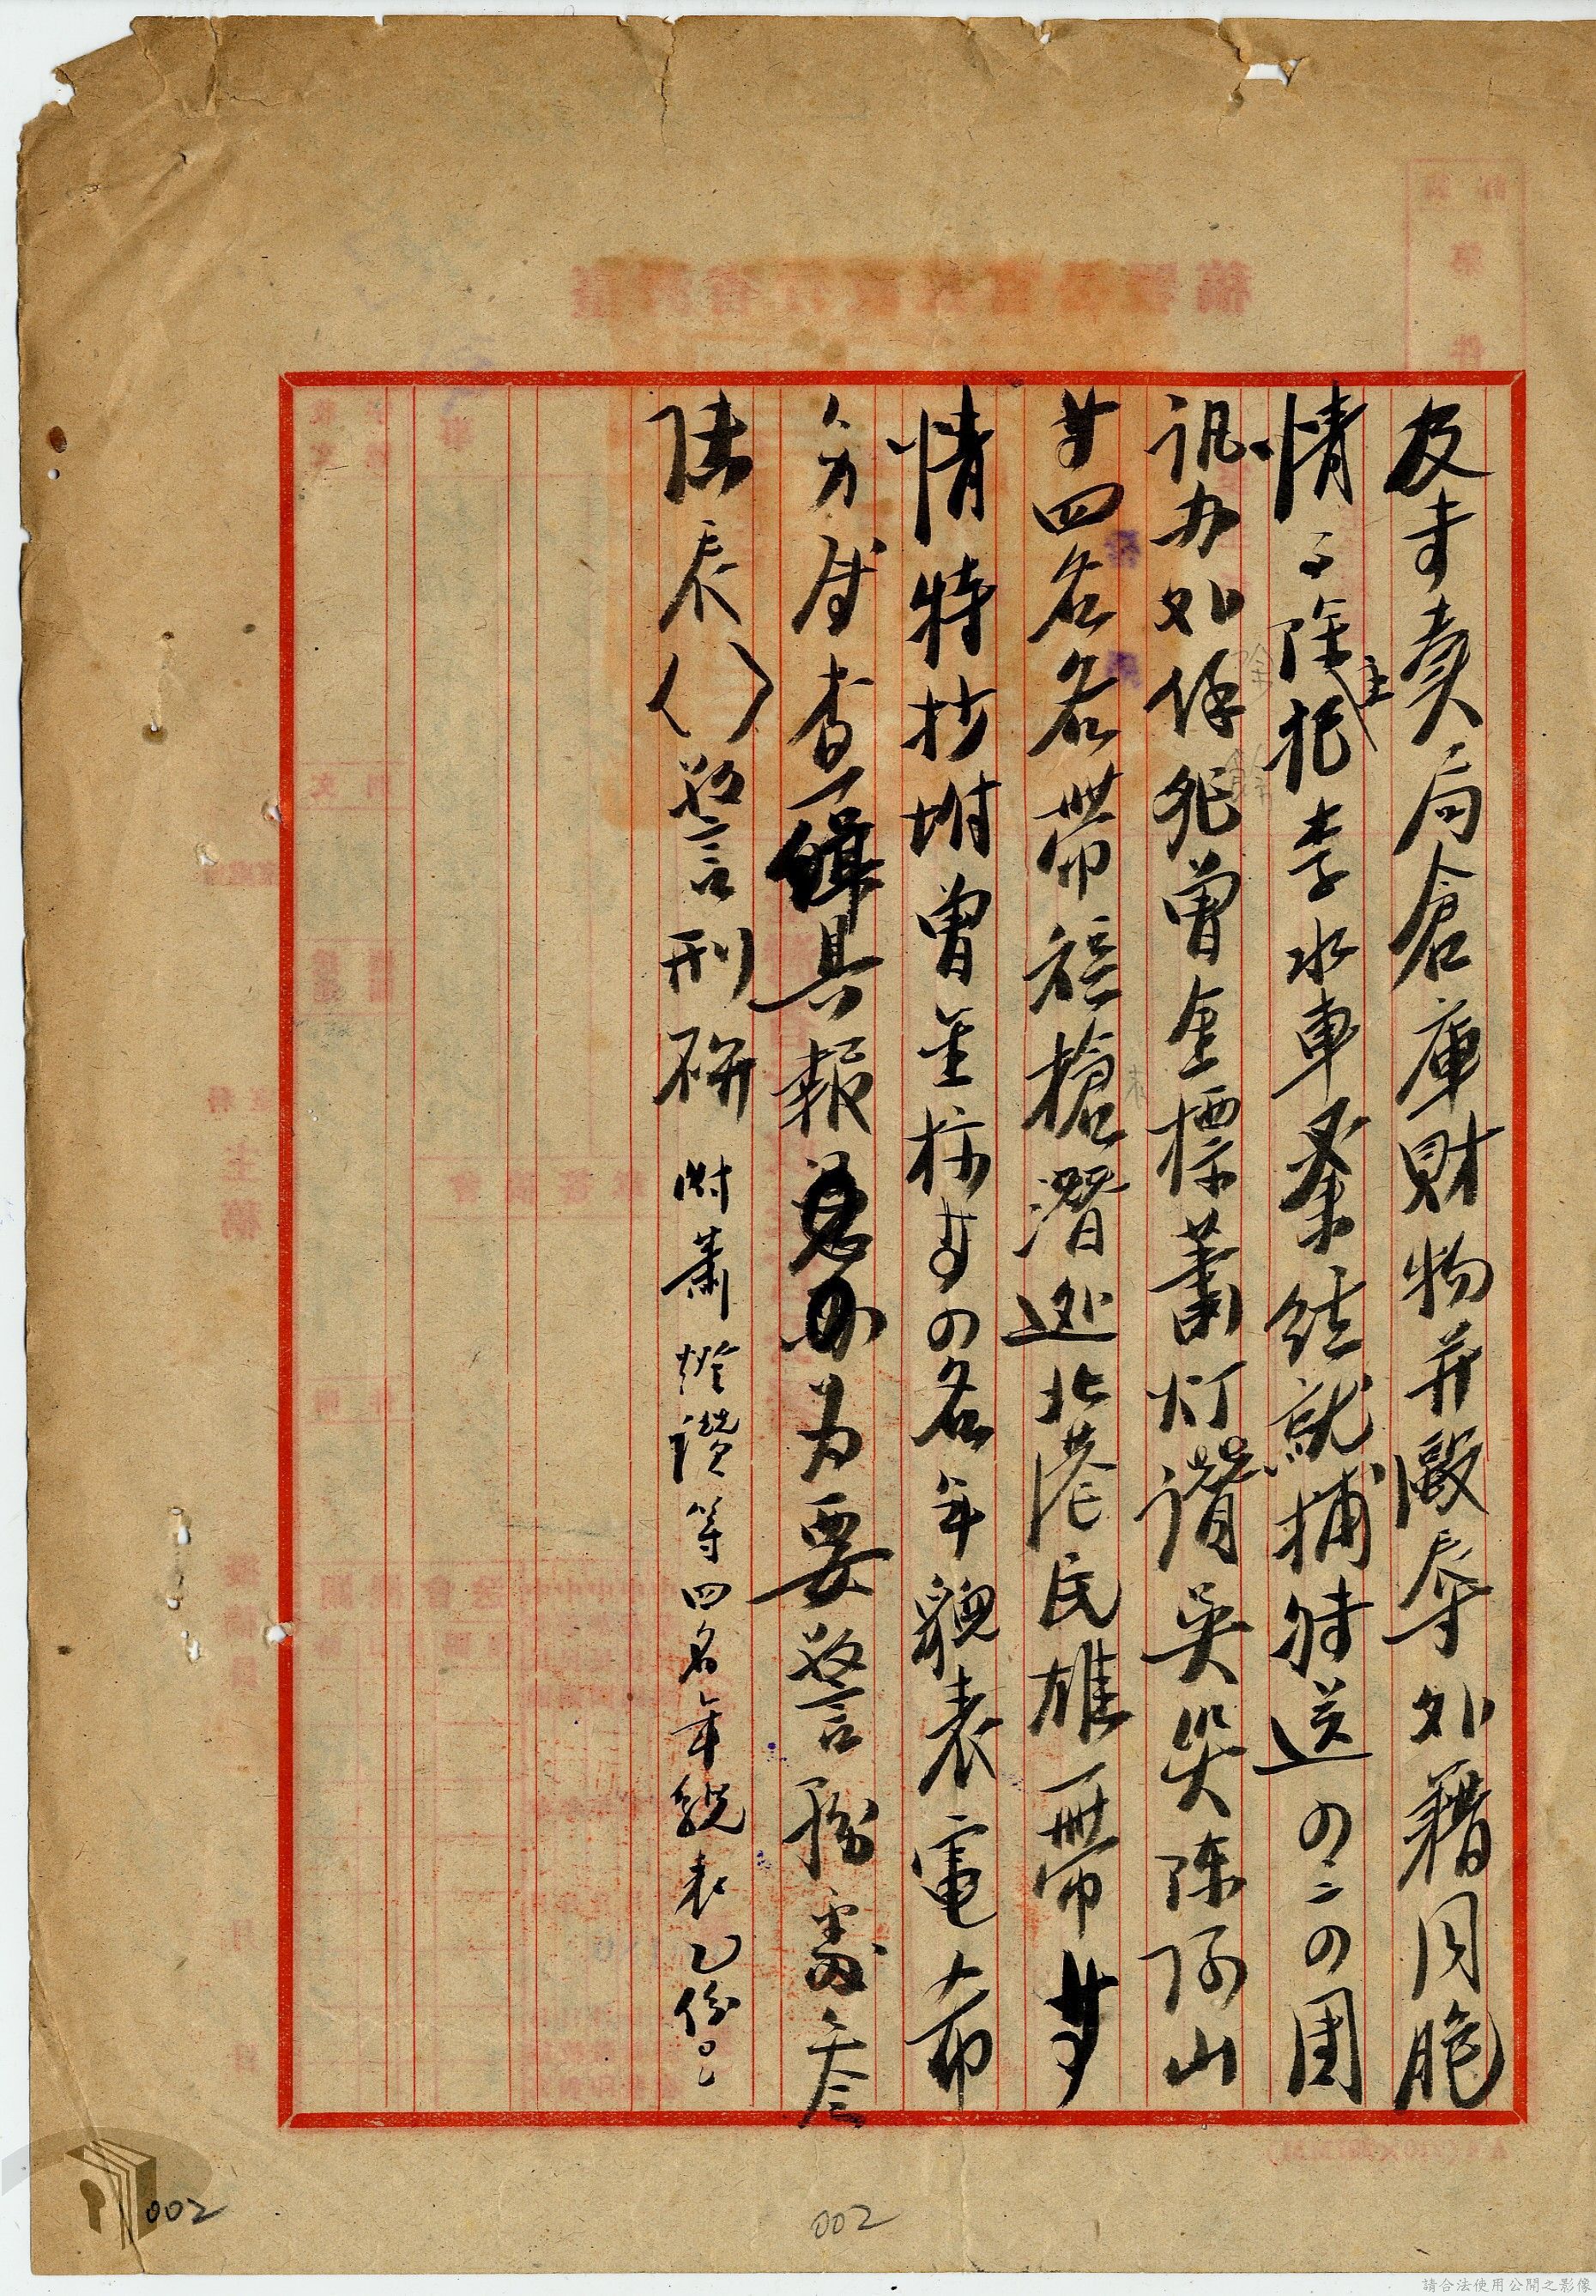 及專賣局倉庫財物并毆辱外籍同胞
情事除主犯李水車業經就捕請送四二四團
訊办外餘犯曾金標蕭灯讚吳哭陈阿山
等四名名帶短槍潛逃北港民雄一帶等
情特抄附曾金标等四名年貌表電希
分局查緝具報为要警務處叁
陆辰（）警刑研 附蕭燈讚等四名年貌表乙份
002
002
請合法使用公開之影像